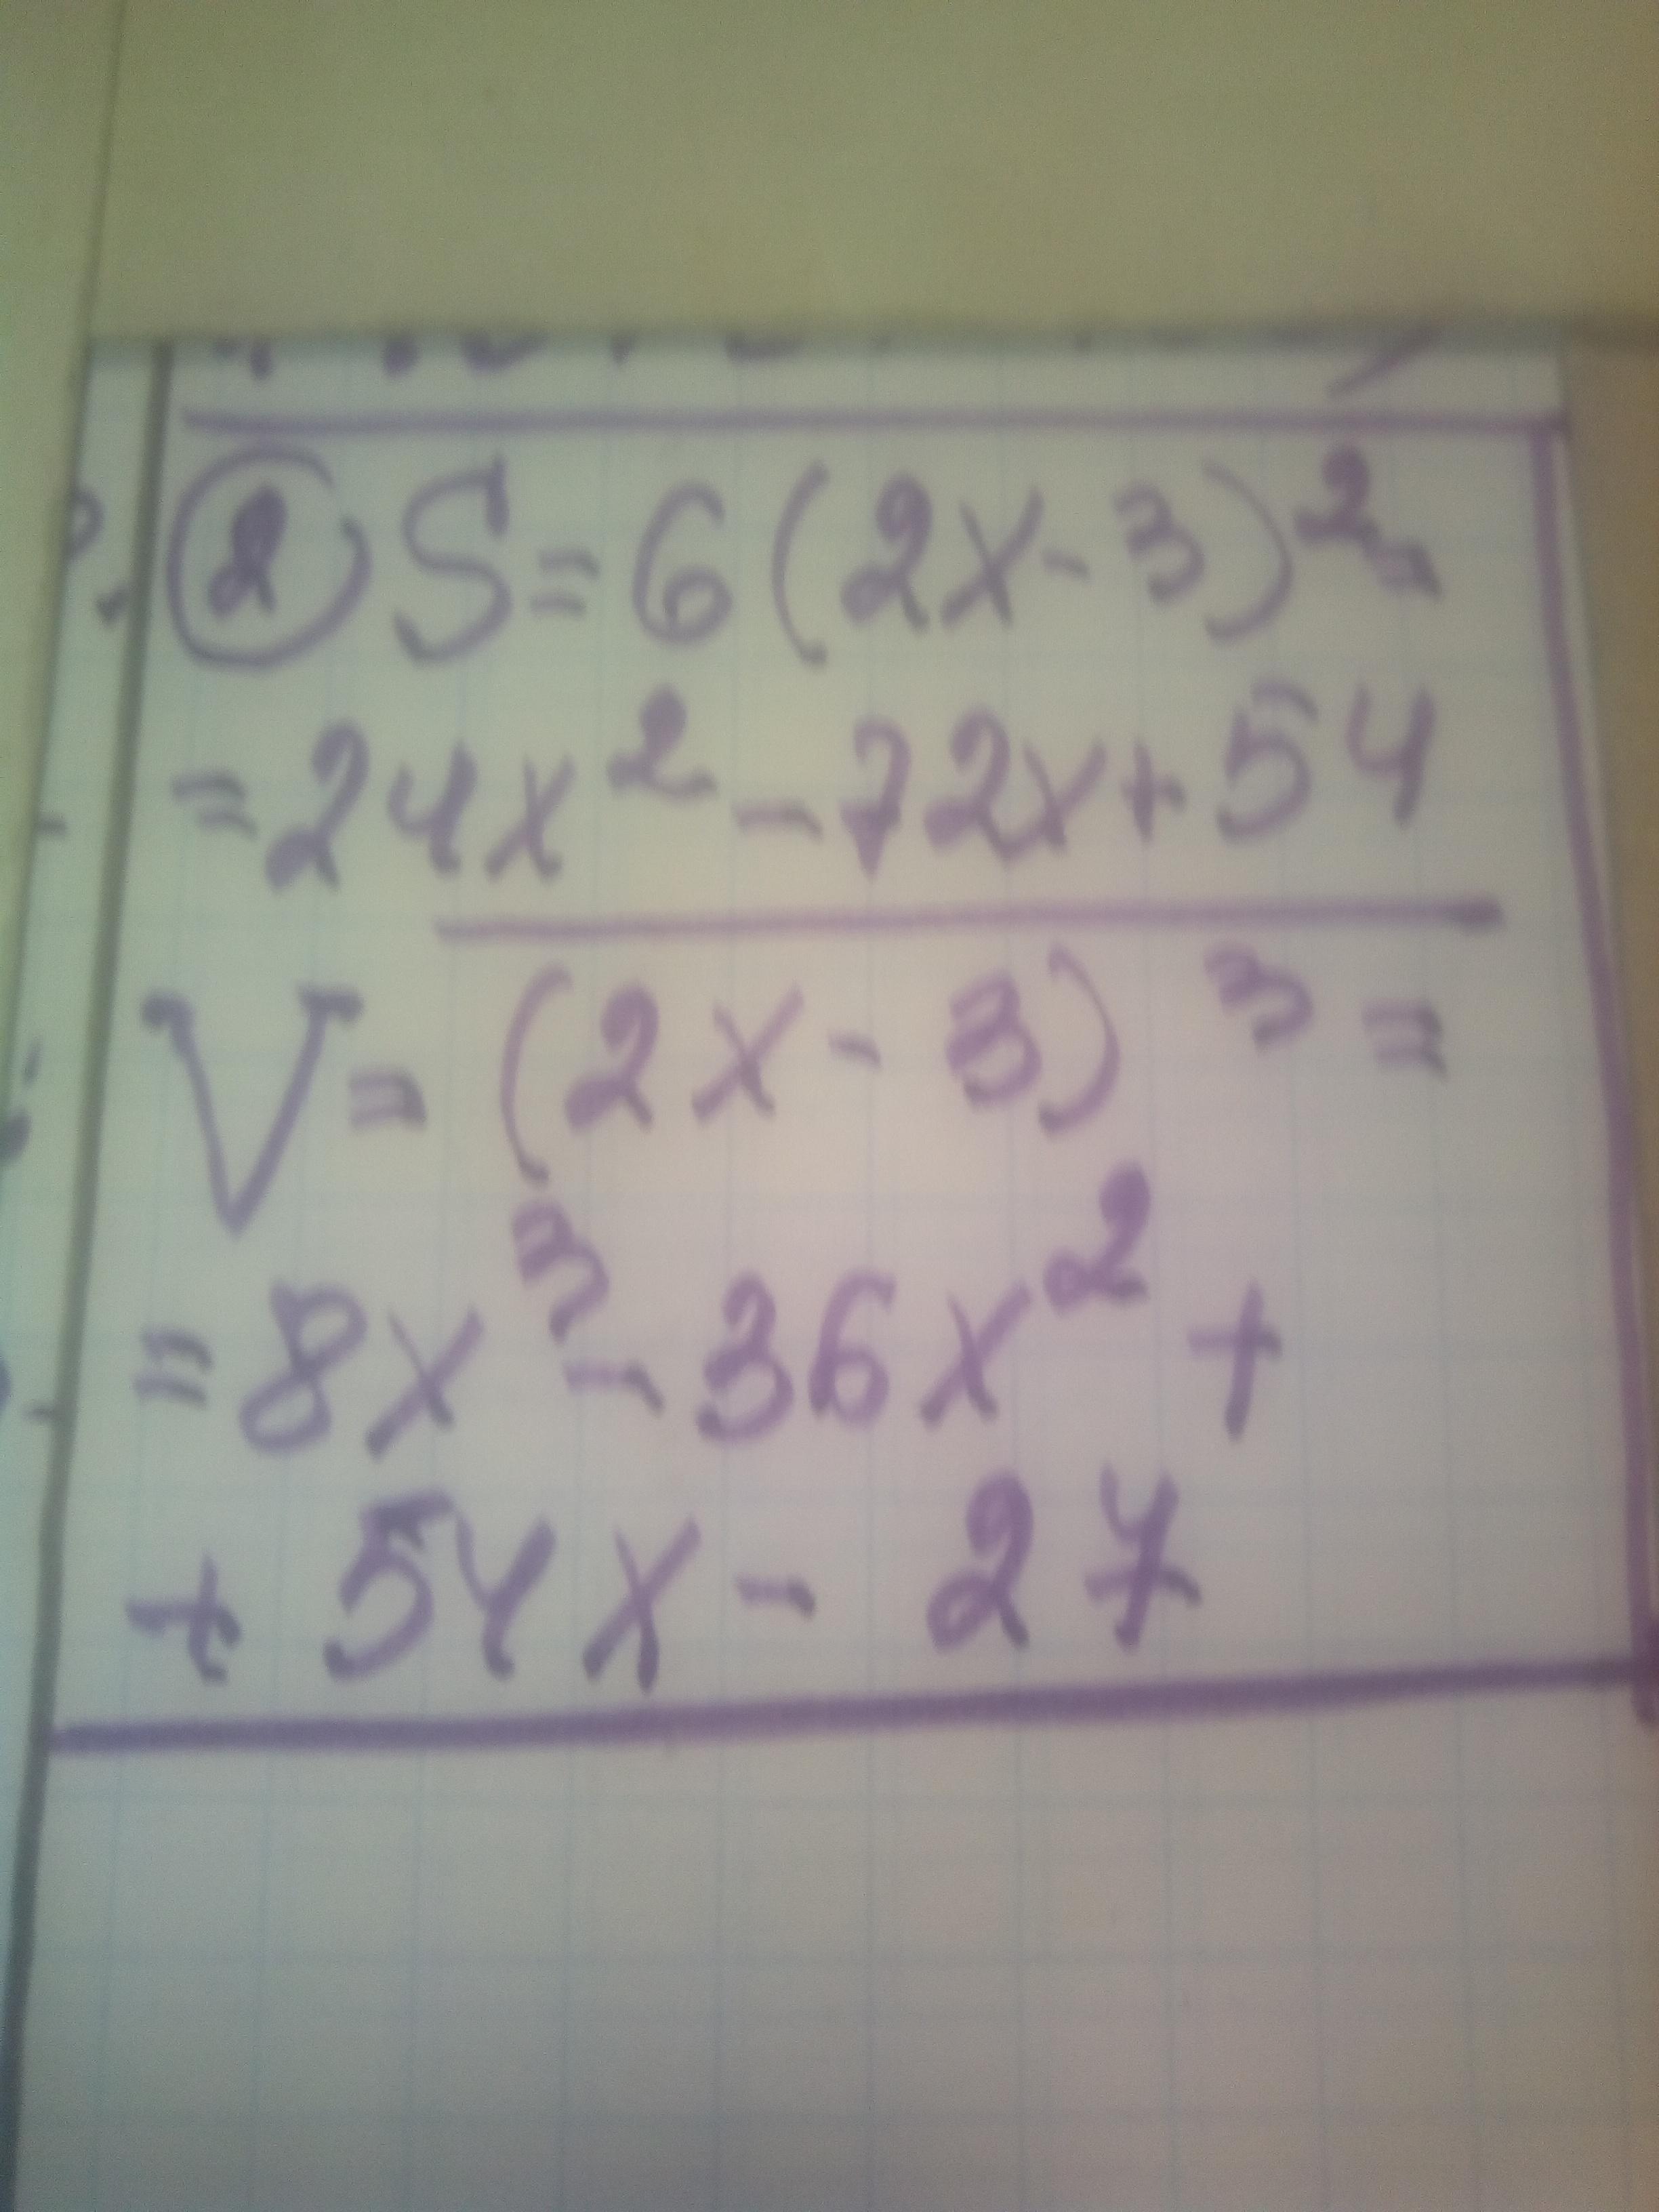 ② S=6(2x-3)²=
=24x²-72x+54
V=(2x-3)³=
=8x³-36x²+
+54x-27